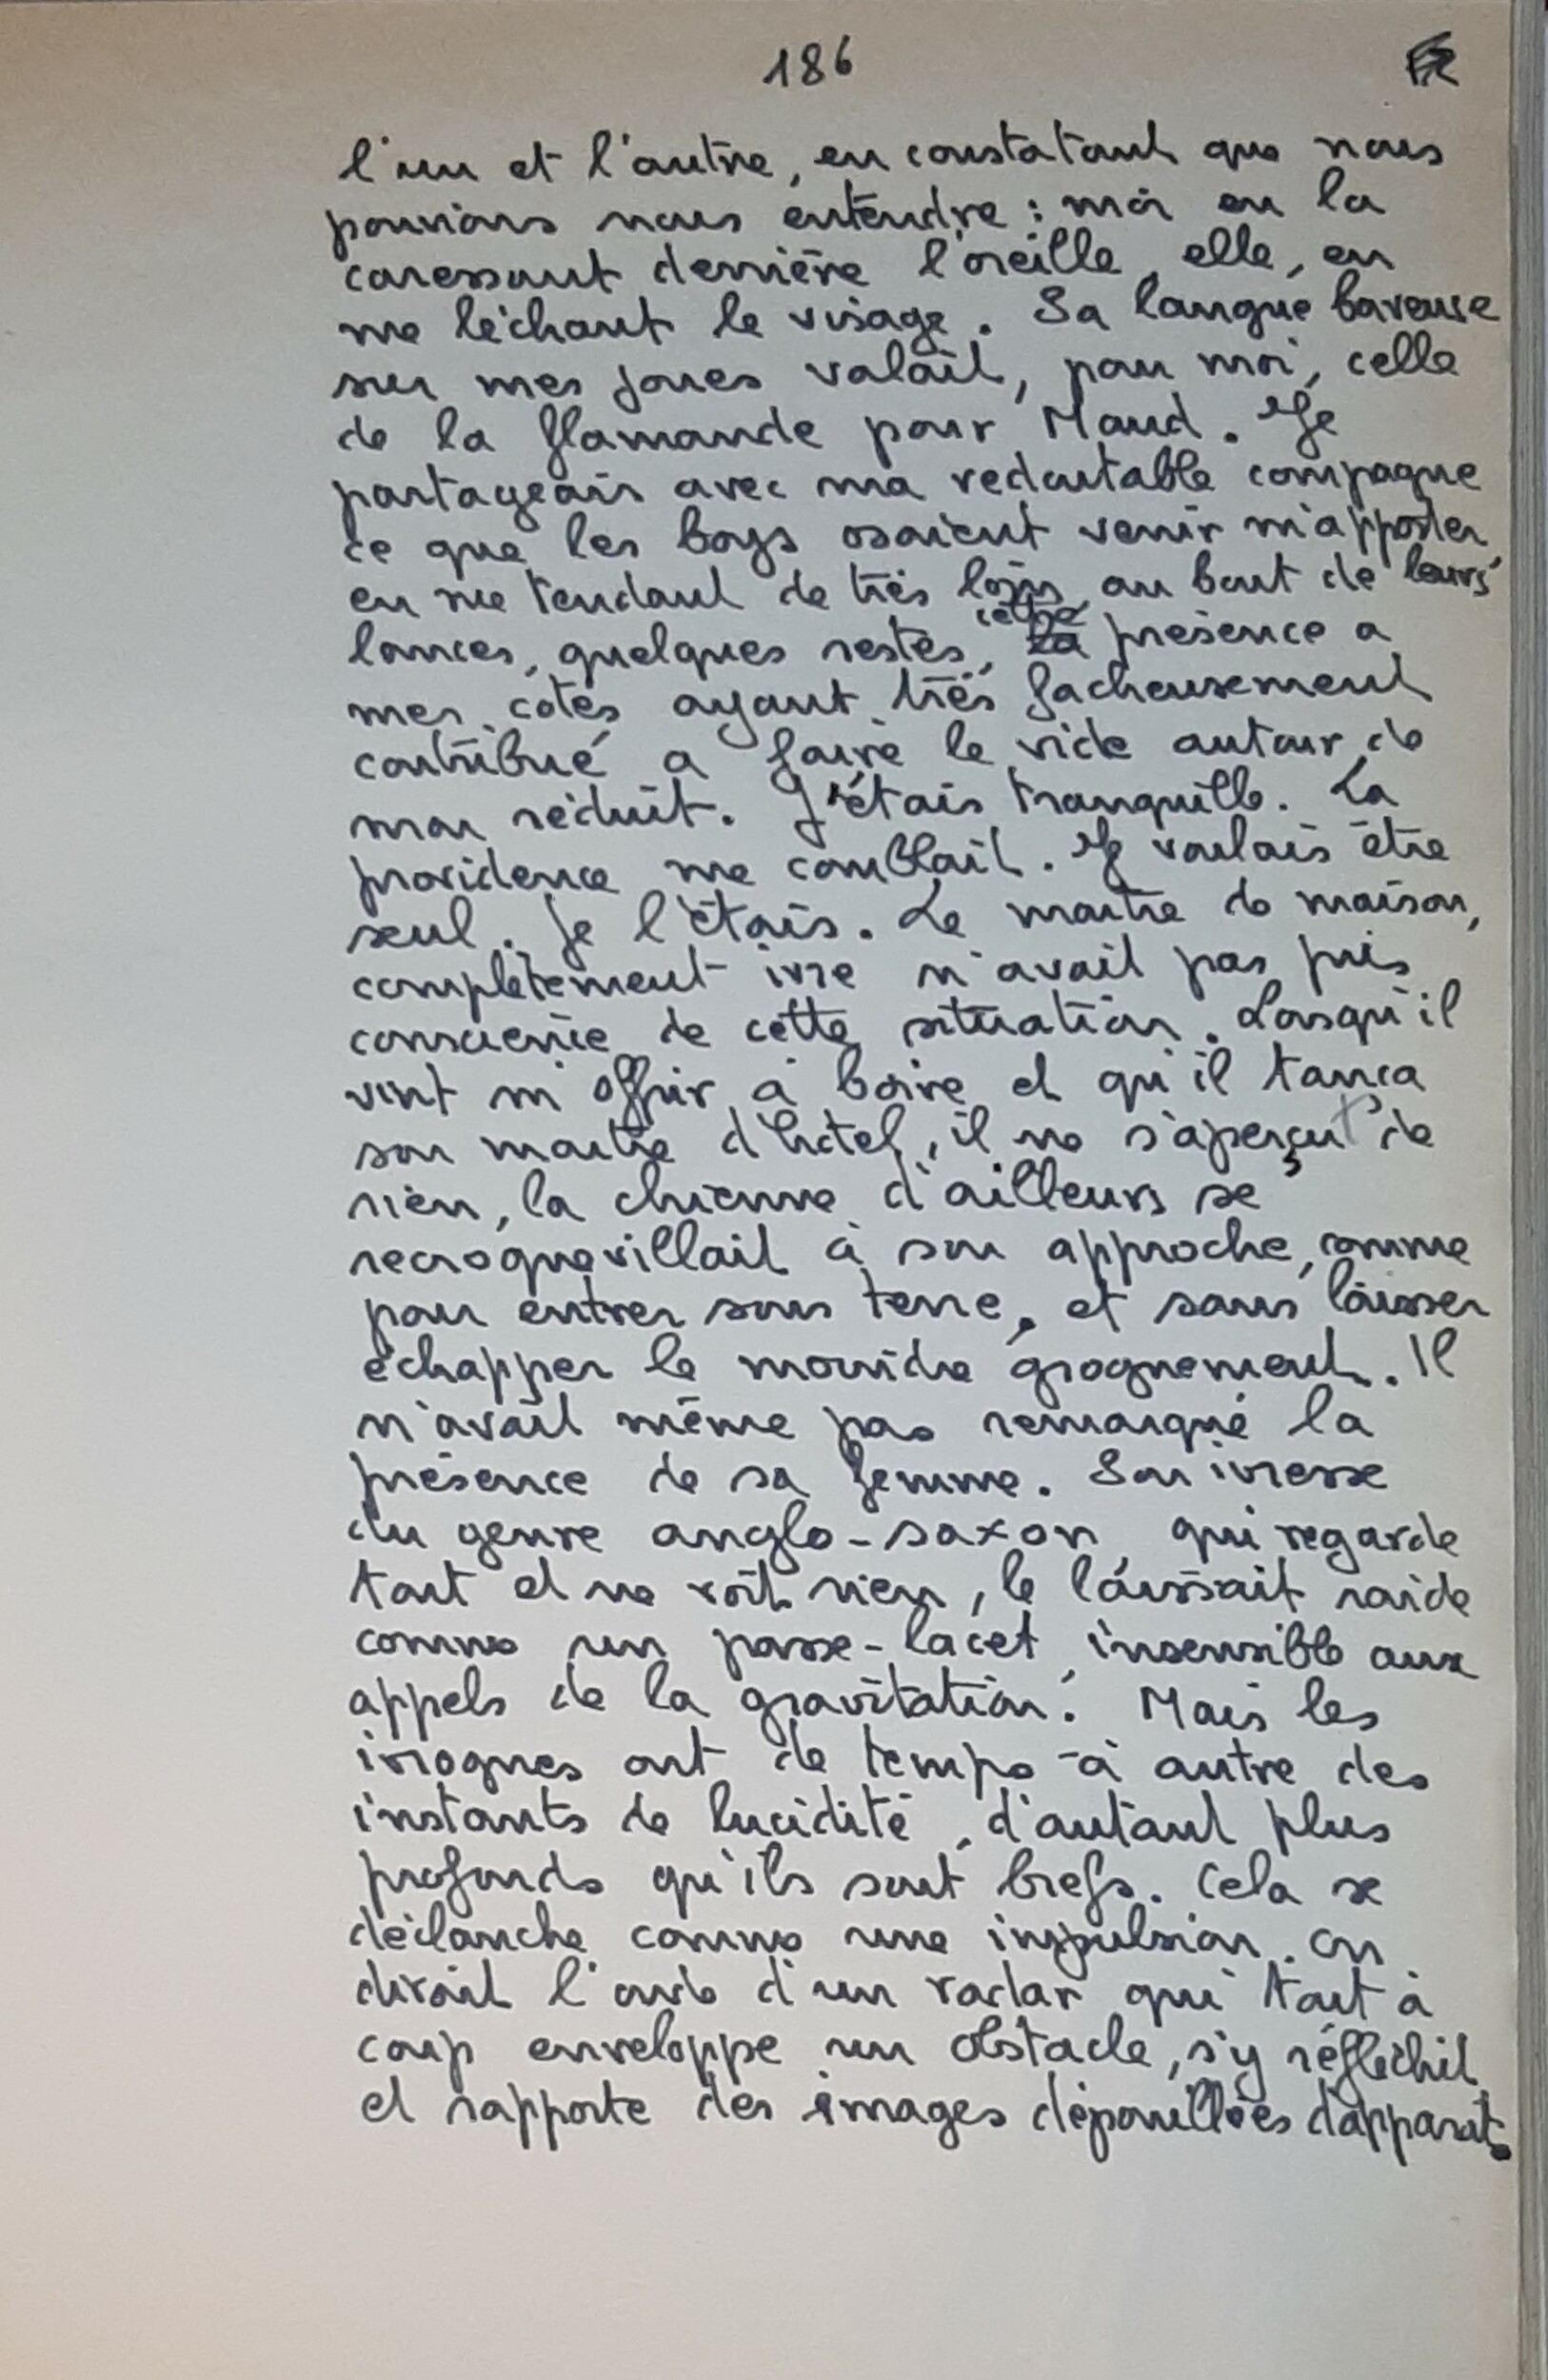 186
l'un et l'autre, en constatant que nous
pouvions nous entendre : moi en la
caressant derrière l'oreille, elle, en
me léchant le visage. Sa langue baveuse
sur mes joues valait, pour moi, celle
de la flamande pour Maud. Je
partageais avec ma redoutable compagne
ce que les boys osaient venir m'apporter
en me tendant de très loin, au bout de leurs
lances, quelques restes, cette présence a
mes côtés ayant très facheusement
contribué a faire le vide autour de
mon réduit. J'étais tranquille. La
providence me comblait. Je voulais être
seul. Je l'étais. Le maitre de maison,
complètement ivre n'avait pas pris
conscience de cette situation. Lorsqu'il
vint m'offrir à boire et qu'il tança
son maitre d'hotel, il ne s'aperçut de
rien, la chienne d'ailleurs se
recroquevillait à son approche, comme
pour entrer sous terre, et sans laisser
échapper le moindre grognement. Il
n'avait même pas remarqué la
présence de sa femme. Son ivresse
du genre anglo-saxon, qui regarde
tout et ne voit rien, le laissait raide
comme un passe-lacet, insensible aux
appels de la gravitation. Mais les
ivrognes ont de temps à autre des
instants de lucidité, d'autant plus
profonds qu'ils sont brefs. Cela se
déclanche comme une impulsion. On
dirait l'onde d'un radar qui tout à
coup enveloppe un obstacle, s'y réfléchit
et rapporte des images dépouillées d'apparat.